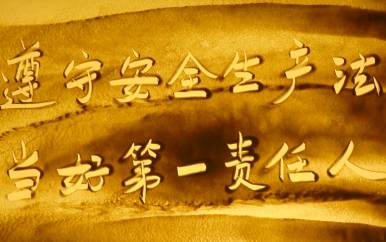 遵守安全生产法
当好第一责任人